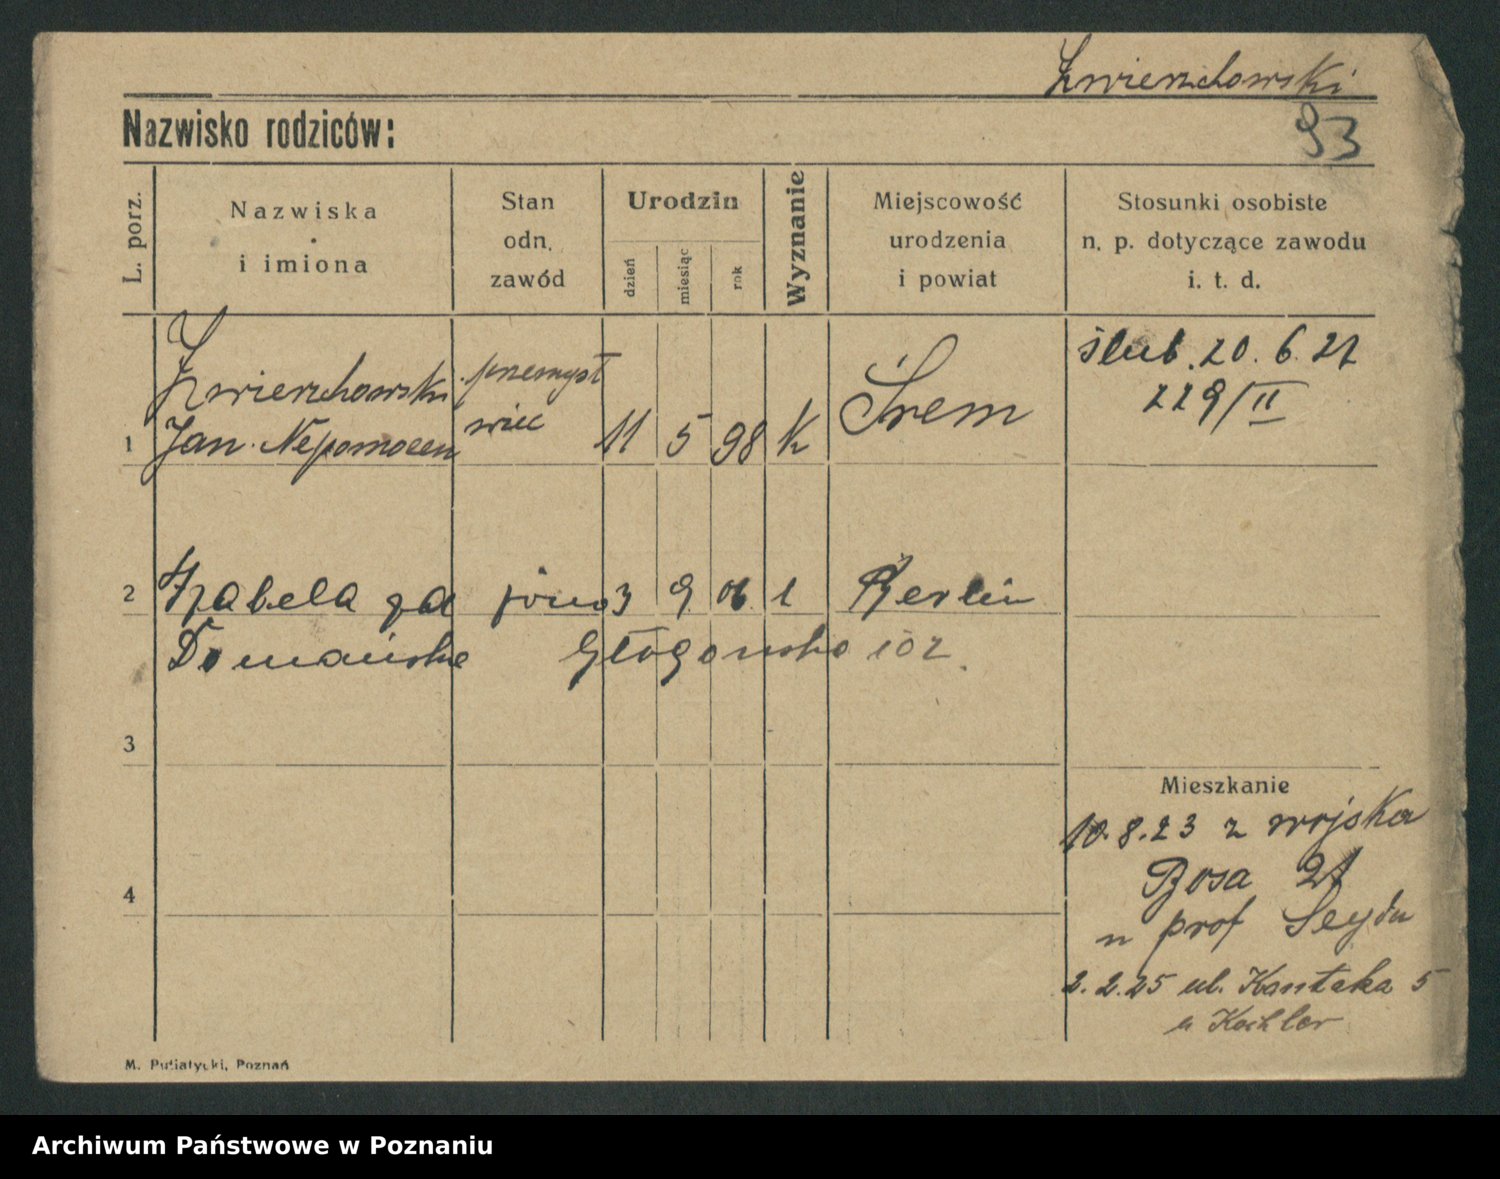 Zwierzchowski
Nazwisko rodziców:
93
L. porz.
Nazwiska
i imiona
Stan
odn.
zawód
Urodzin
dzień
miesiąc
rok
Wyznanie
Miejscowość
urodzenia
i powiat
Stosunki osobiste
n. p. dotyczące zawodu
i. t. d.
1
Zwierzchowski
Jan Nepomocen
przemysł
wiec
11 5 98 K
Śrem
ślub. 20. 6. 27
229/II
2
Izabela zd
Domańska
3 9 06 k
Berlin
Głogowska 102
3
4
Mieszkanie
10.8.23 z wojska
Bosa 21
u prof Seyda
2.2.25 ul. Kantaka 5
u Kochler
M. Putiatycki, Poznań
Archiwum Państwowe w Poznaniu